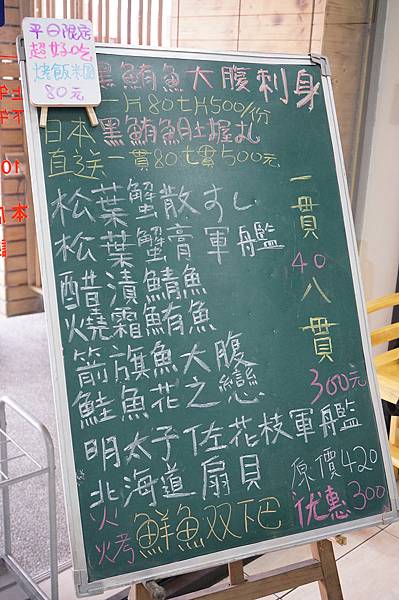 平日限定
超好吃
燒飯米糰
80元
黑鮪魚大腹刺身
一片80七片500/份
日本黑鮪魚肚握
直送一貫80七貫500元
松葉蟹散すし
松葉蟹膏軍艦
醋漬鯖魚
燒霜鮪魚
箭旗魚大腹
鮭魚花之戀
一貫40八貫300元
明太子佐花枝軍艦
北海道扇貝
原價420
优惠300
火烤鮮魚双下巴